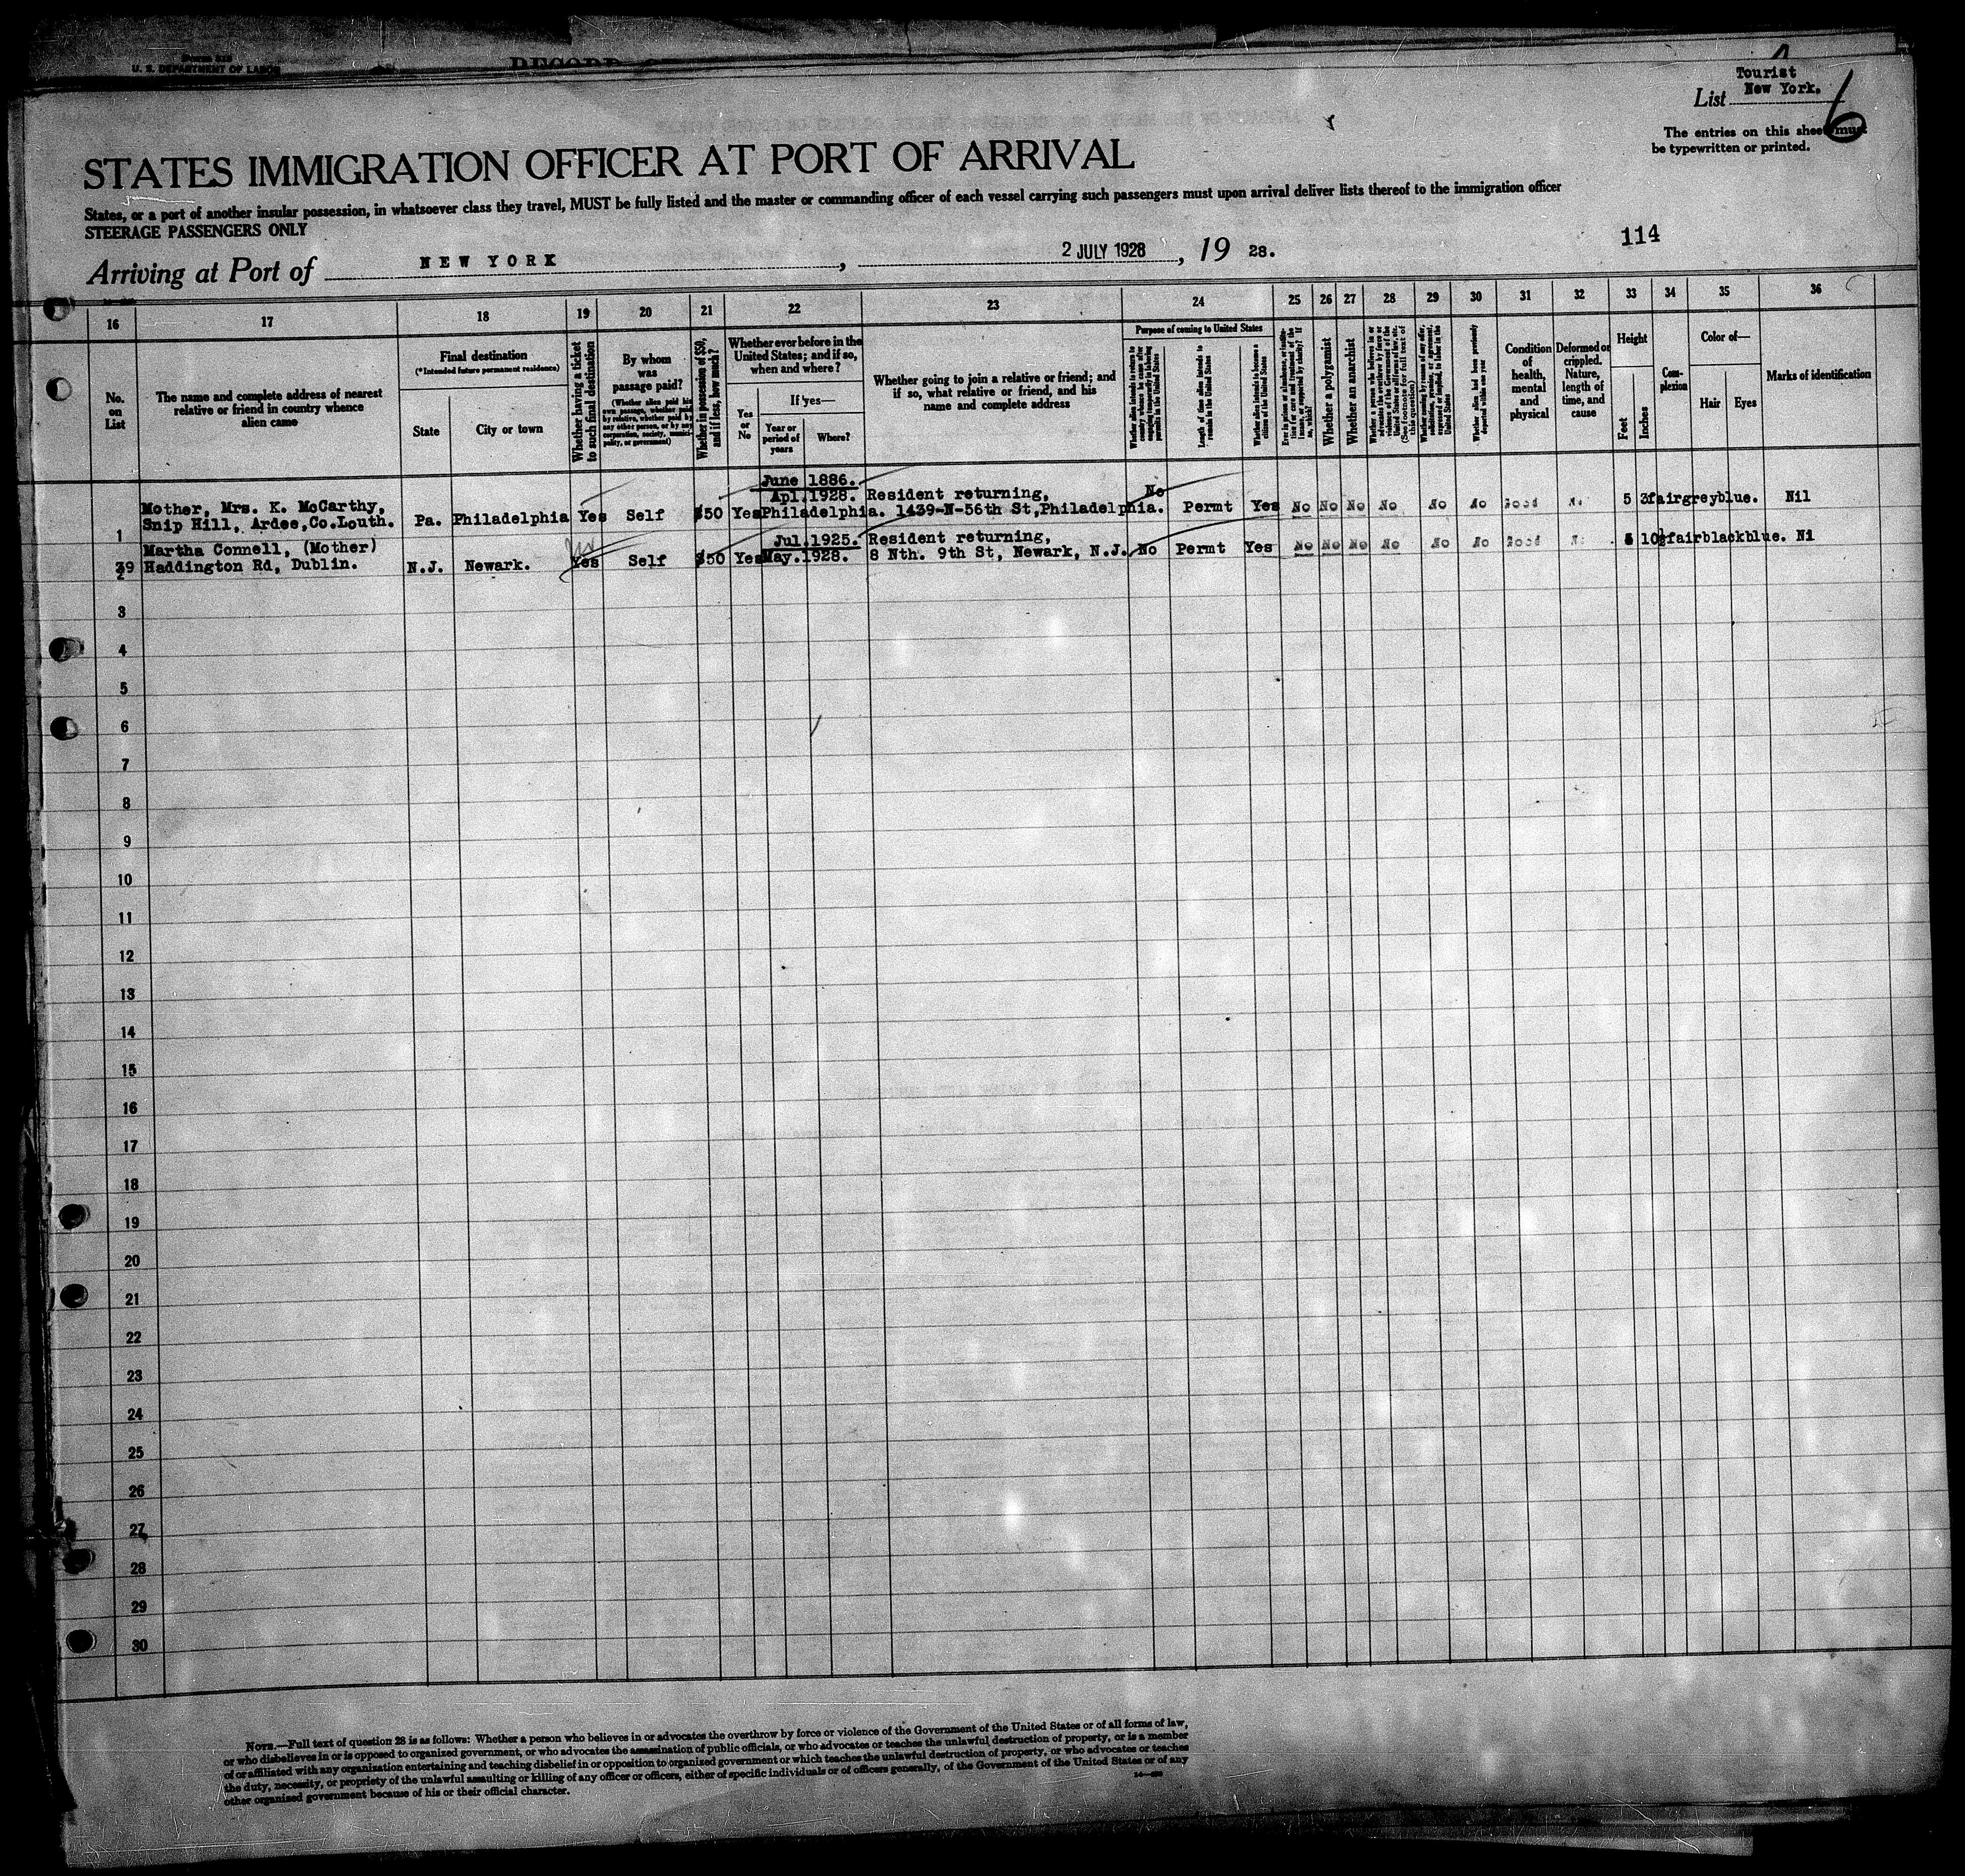 U. S. DEPARTMENT OF LABOR
RECORD
Tourist
List New York. 6
The entries on this sheet must
be typewritten or printed.
STATES IMMIGRATION OFFICER AT PORT OF ARRIVAL
States, or a port of another insular possession, in whatsoever class they travel, MUST be fully listed and the master or commanding officer of each vessel carrying such passengers must upon arrival deliver lists thereof to the immigration officer
STEERAGE PASSENGERS ONLY
114
Arriving at Port of NEW YORK, 2 JULY 1928, 19 28.
16 17 18 19 20 21 22 23 24 25 26 27 28 29 30 31 32 33 34 35 36
No.
on
List
The name and complete address of nearest
relative or friend in country whence
alien came
Final destination
(*Intended future permanent residence)
State
City or town
Whether having a ticket
to such final destination
By whom
was
passage paid?
(Whether alien paid his
own passage, whether paid
by relative, whether paid by
any other person, or by any
corporation, society, munici-
pality, or government)
Whether in possession of $50,
and if less, how much?
Whether ever before in the
United States; and if so,
when and where?
Yes
or
No
If yes—
Year or
period of
years
Where?
Whether going to join a relative or friend; and
if so, what relative or friend, and his
name and complete address
Purpose of coming to United States
Whether alien intends to return to
country whence he came after
engaging temporarily in laboring
pursuits in the United States
Length of time alien intends to
remain in the United States
Whether alien intends to become a
citizen of the United States
Whether a polygamist
Whether an anarchist
Whether alien had been previously
deported within one year
Condition
of
health,
mental
and
physical
Deformed or
crippled.
Nature,
length of
time, and
cause
Height
Feet
Inches
Com-
plexion
Color of—
Hair
Eyes
Marks of identification
June 1886.
Mother, Mrs. K. McCarthy, Apl.1928. Resident returning, No
1 Snip Hill, Ardee,Co.Louth. Pa. Philadelphia Yes Self $50 Yes Philadelphia. 1439-N-56th St,Philadelphia. Permt Yes No No No No No No Good No 5 3 fair grey blue. Nil
Martha Connell, (Mother) Jul.1925. Resident returning,
2 39 Haddington Rd, Dublin. N.J. Newark. Yes Self $50 Yes May.1928. 8 Nth. 9th St, Newark, N.J. No Permt Yes No No No No No No Good No 5 10½ fair black blue. Ni
3
4
5
6
7
8
9
10
11
12
13
14
15
16
17
18
19
20
21
22
23
24
25
26
27
28
29
30
NOTE.—Full text of question 28 is as follows: Whether a person who believes in or advocates the overthrow by force or violence of the Government of the United States or of all forms of law,
or who disbelieves in or is opposed to organized government, or who advocates the assassination of public officials, or who advocates or teaches the unlawful destruction of property, or is a member
of or affiliated with any organization entertaining and teaching disbelief in or opposition to organized government or which teaches the unlawful destruction of property, or who advocates or teaches
the duty, necessity, or propriety of the unlawful assaulting or killing of any officer or officers, either of specific individuals or of officers generally, of the Government of the United States or of any
other organized government because of his or their official character.